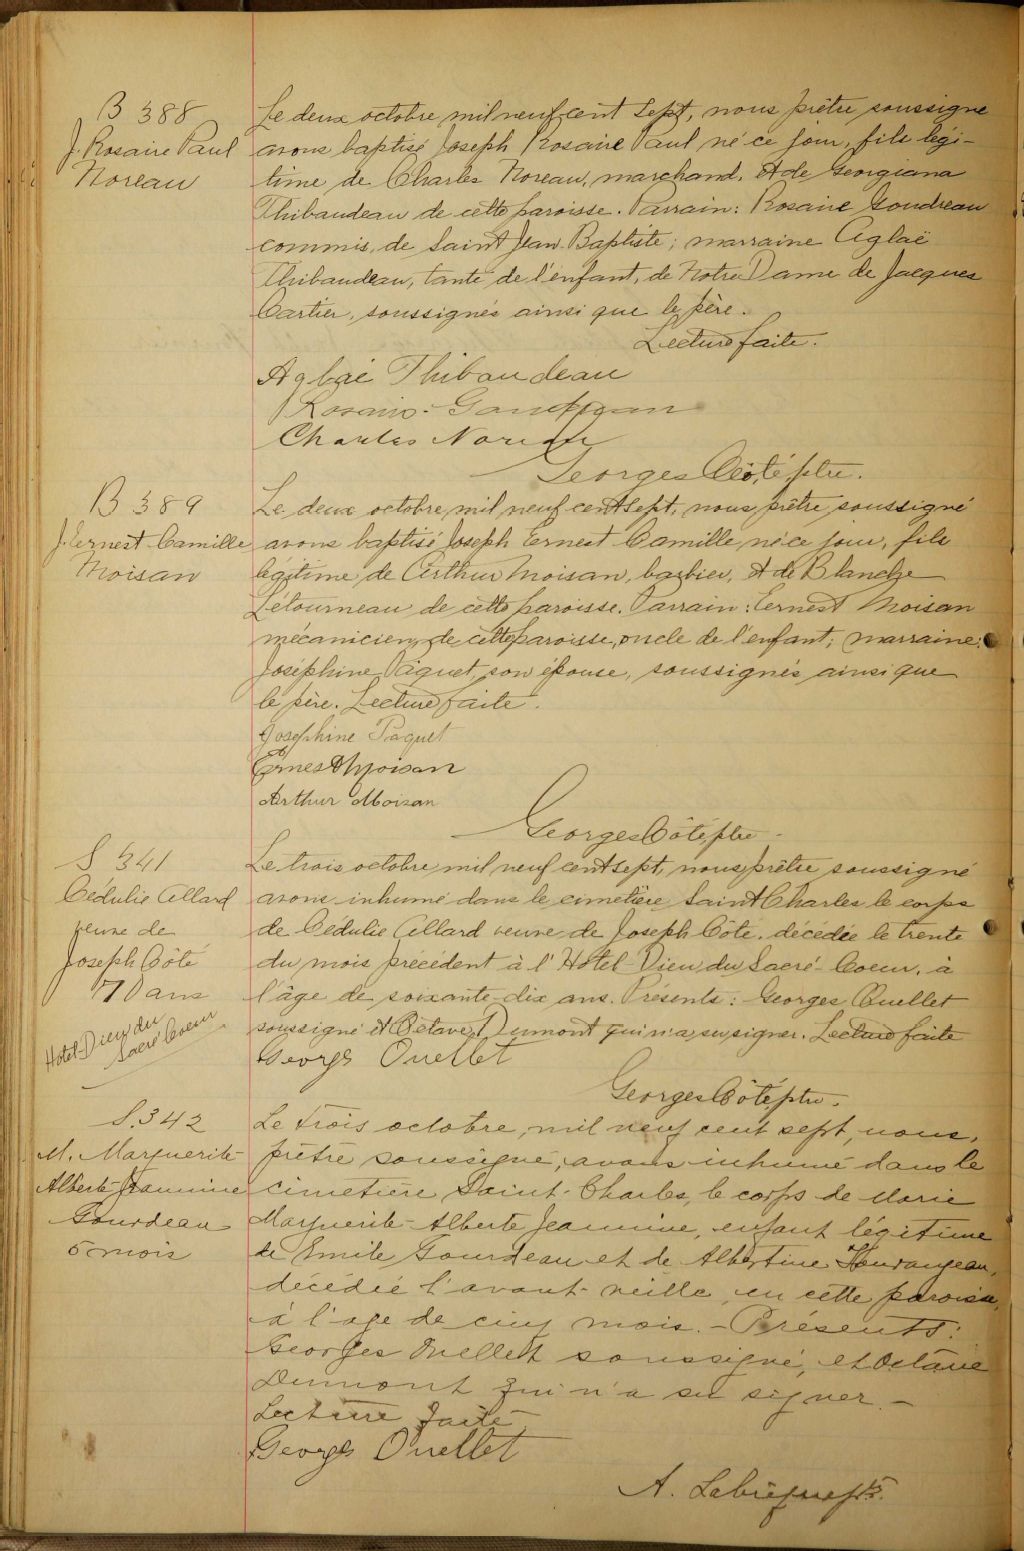 B 388
J. Rosaire Paul
Noreau
Le deux octobre mil neuf cent sept, nous prêtre soussigné
avons baptisé Joseph Rosaire Paul né ce jour, fils légi-
time de Charles Noreau, marchand, et de Georgiana
Thibaudeau de cette paroisse. Parrain: Rosaire Goudreau
commis, de Saint Jean-Baptiste; marraine Aglaë
Thibaudeau, tante de l'enfant, de Notre Dame de Jacques
Cartier, soussignés ainsi que le père.
Lecture faite.
Aglaé Thibaudeau
Rosario
Charles Noreau
Georges Côté, ptre.
B 389
J. Ernest Camille
Moisan
Le deux octobre mil neuf cent sept, nous prêtre soussigné
avons baptisé Joseph Ernest Camille né ce jour, fils
légitime de Arthur Moisan, barbier, et de Blanche
Létourneau de cette paroisse. Parrain: Ernest Moisan
mécanicien, de cette paroisse, oncle de l'enfant; marraine:
Joséphine Paquet, son épouse, soussignés ainsi que
le père. Lecture faite.
Josephine Paquet
Ernest Moisan
Arthur Moisan
Georges Côté, ptre
S 341
Cédulie Allard
veuve de
Joseph Côté
70 ans
Hotel-Dieu du
Sacré Coeur
Le trois octobre mil neuf cent sept, nous prêtre soussigné
avons inhumé dans le cimetière Saint Charles le corps
de Cédulie Allard veuve de Joseph Côté, décédée le trente
du mois précédent à l'Hôtel-Dieu du Sacré-Coeur, à
l'âge de soixante-dix ans. Présents: Georges Ouellet
soussigné et Octave Dumont qui n'a su signer. Lecture faite
Georgs Ouellet
Georges Côté, ptre.
S. 342
M. Marguerite-
Alberte-Jeannine
Gourdeau
5 mois
Le trois octobre, mil neuf cent sept, nous,
prêtre soussigné, avons inhumé dans le
cimetière Saint-Charles, le corps de Marie
Marguerite-Alberte Jeannine, enfant légitime
de Emile Gourdeau et de Albertine
décédée l'avant-veille, en cette paroisse,
à l'age de cinq mois. - Présents:
Georges Ouellet soussigné, et Octave
Dumont qui n'a su signer. -
Lecture faite
Georgs Ouellet
A. Labrecque ptr.